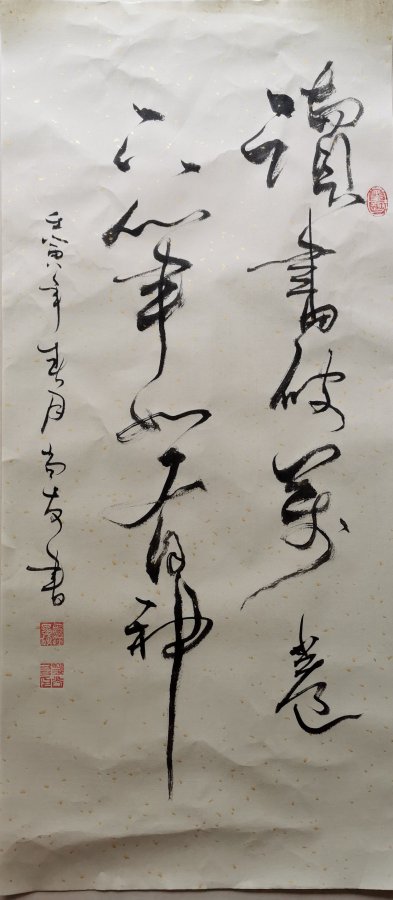 讀書破萬卷
下筆如有神
壬寅年春月尚友書